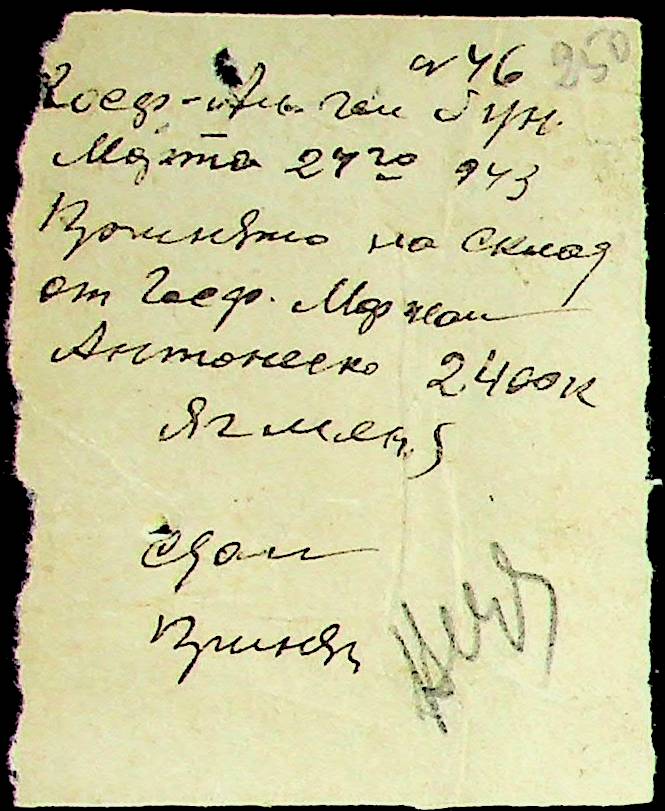 № 46 250
Госф-
Марта 24го 943
Принято на склад
от Госф. Маршал
Антонеско 2400к
Ячмень
Сдал
Принял